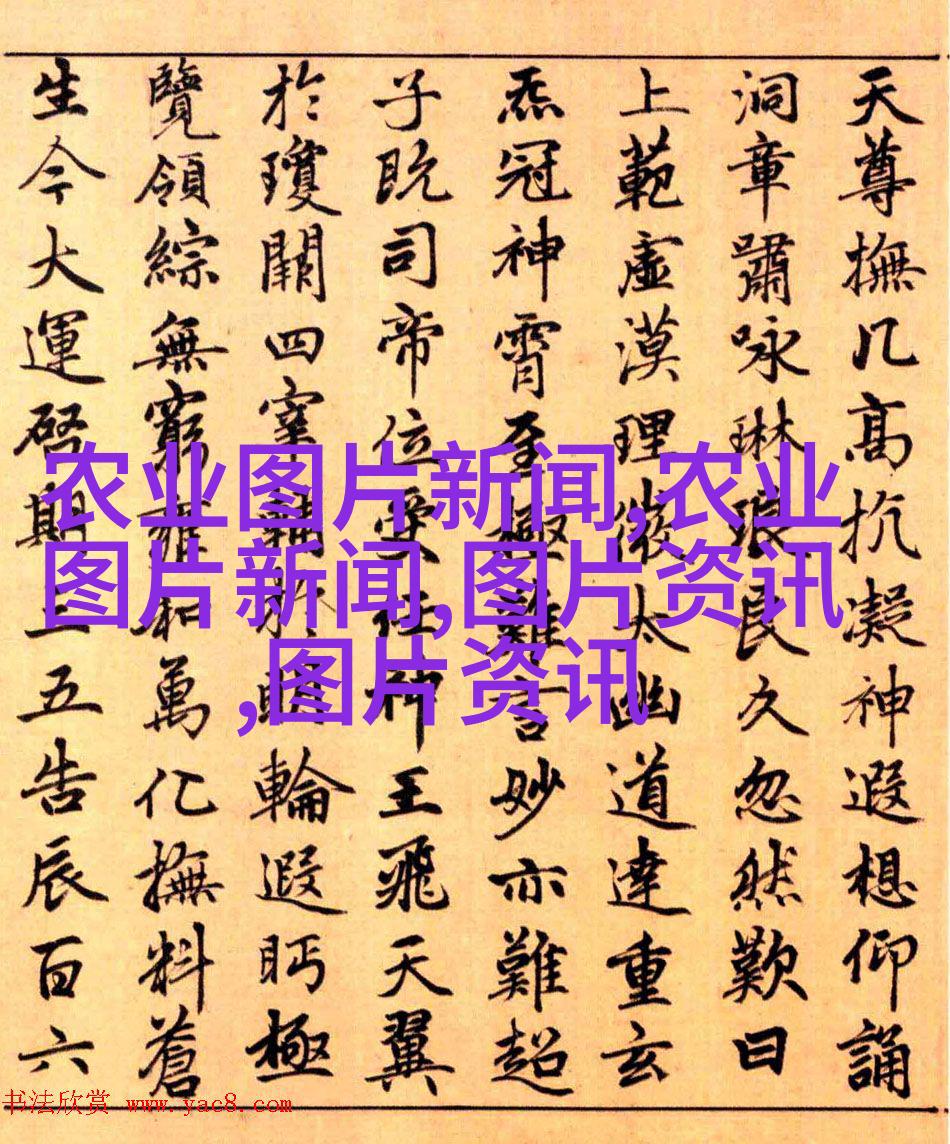 天尊撫几高抗凝神遐想仰誦
洞章嘯咏琳琅良久忽然歎曰
上範虛漠理微太幽道達重玄
炁冠神霄至極難言妙亦難超
子既司帝位受任神王飛天翼
於瓊闕四宰輔於明輪遐眄極
覽領綜無窮雍和萬化撫料蒼
生今大運啓期三五告辰百六
农业图片新闻,农业
图片新闻,图片资讯
,图片资讯
书法欣赏 www.yac8.com